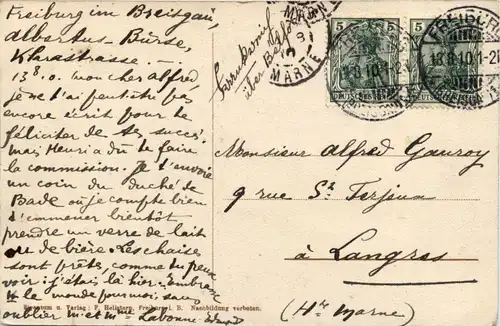 Freiburg im Breisgau,
Albertus-Bürse,
Klarastrasse. —
13.8.10. mon cher Alfred
je ne t'ai peut être pas
encore écrit pour te
féliciter de tes succès,
mais Henri a dû te faire
la commission. Je t'envoie
un coin du duché de
Bade où je compte bien
t'emmener bientôt
prendre un verre de lait
ou de bière. Les chaises
sont prêtes, comme tu peux
voir: j'étais là hier. Embrasse
le monde pour moi sans
oublier m et mme Labonne.
Verlag: F. Freiburg i. B. Nachbildung verboten.
über
MARNE
5 5
FREIBURG
13.8.10.1-2
(BREISGAU)
Monsieur Alfred Gauroy
9 rue St Ferjeux
à Langres
(Hte Marne)